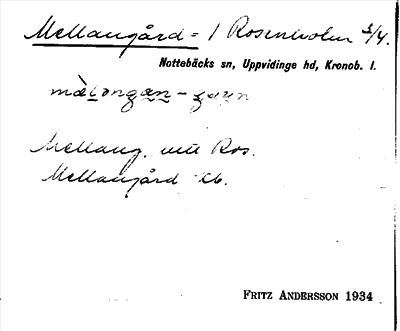 Mellangård = 1 Rosenholm 5/4.
Nottebäcks sn, Uppvidinge hd, Kronob. l.
Mellang. utu Ros.
Mellangård Kb.
FRITZ ANDERSSON 1934